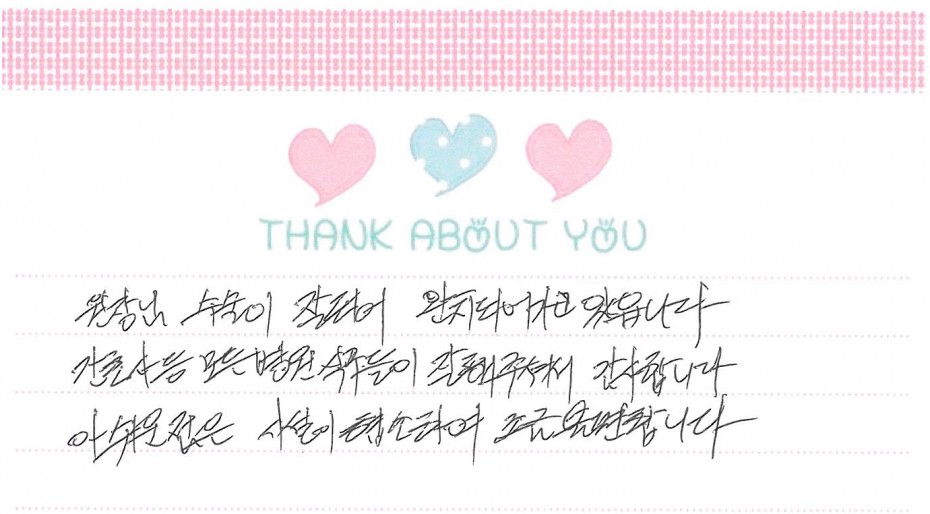 THANK ABOUT YOU
원장님 수술이 잘되어 완치되어가고 있읍니다
간호사등 모든병원식구들이 잘해주셔서 감사합니다
아쉬운점은 시설이 협소하여 조금 불편합니다